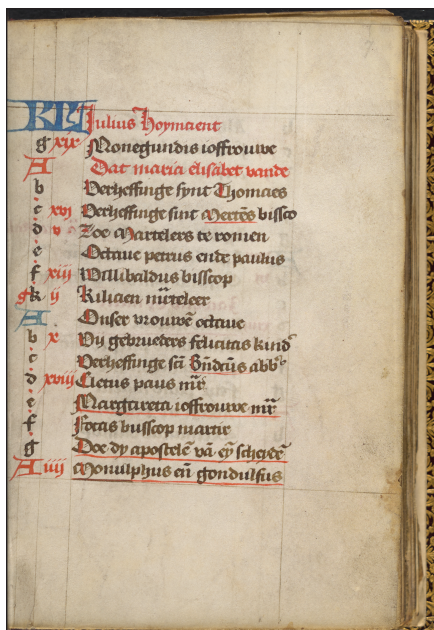 KL Julius hoymaent
g xix Monegundis ioffrouwe
A Dat maria elisabet vande
b Verheffinge synt Thomaes
c xvj Verheffinge sint Mertens bissco
d v Zoe Martelers te romen
e Octave petrus ende paulus
f xiij Willibaldus bisscop
g ij Kiliaen mrteleer
A Onser vrouwen octave
b x Vij gebrueders felicitas kind
c Verheffinge sci Bndcus abb
d xviij Cletus paus mr
e Margareta ioffrouwe mr
f Focas busscop martir
g Doe dy apostele va ey scheyde
A iiij Monulphus en gondulfus